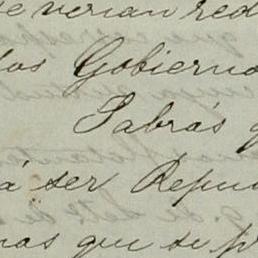 se verian red
los Gobierno
Sabrás q
á ser Repu
nas que se p